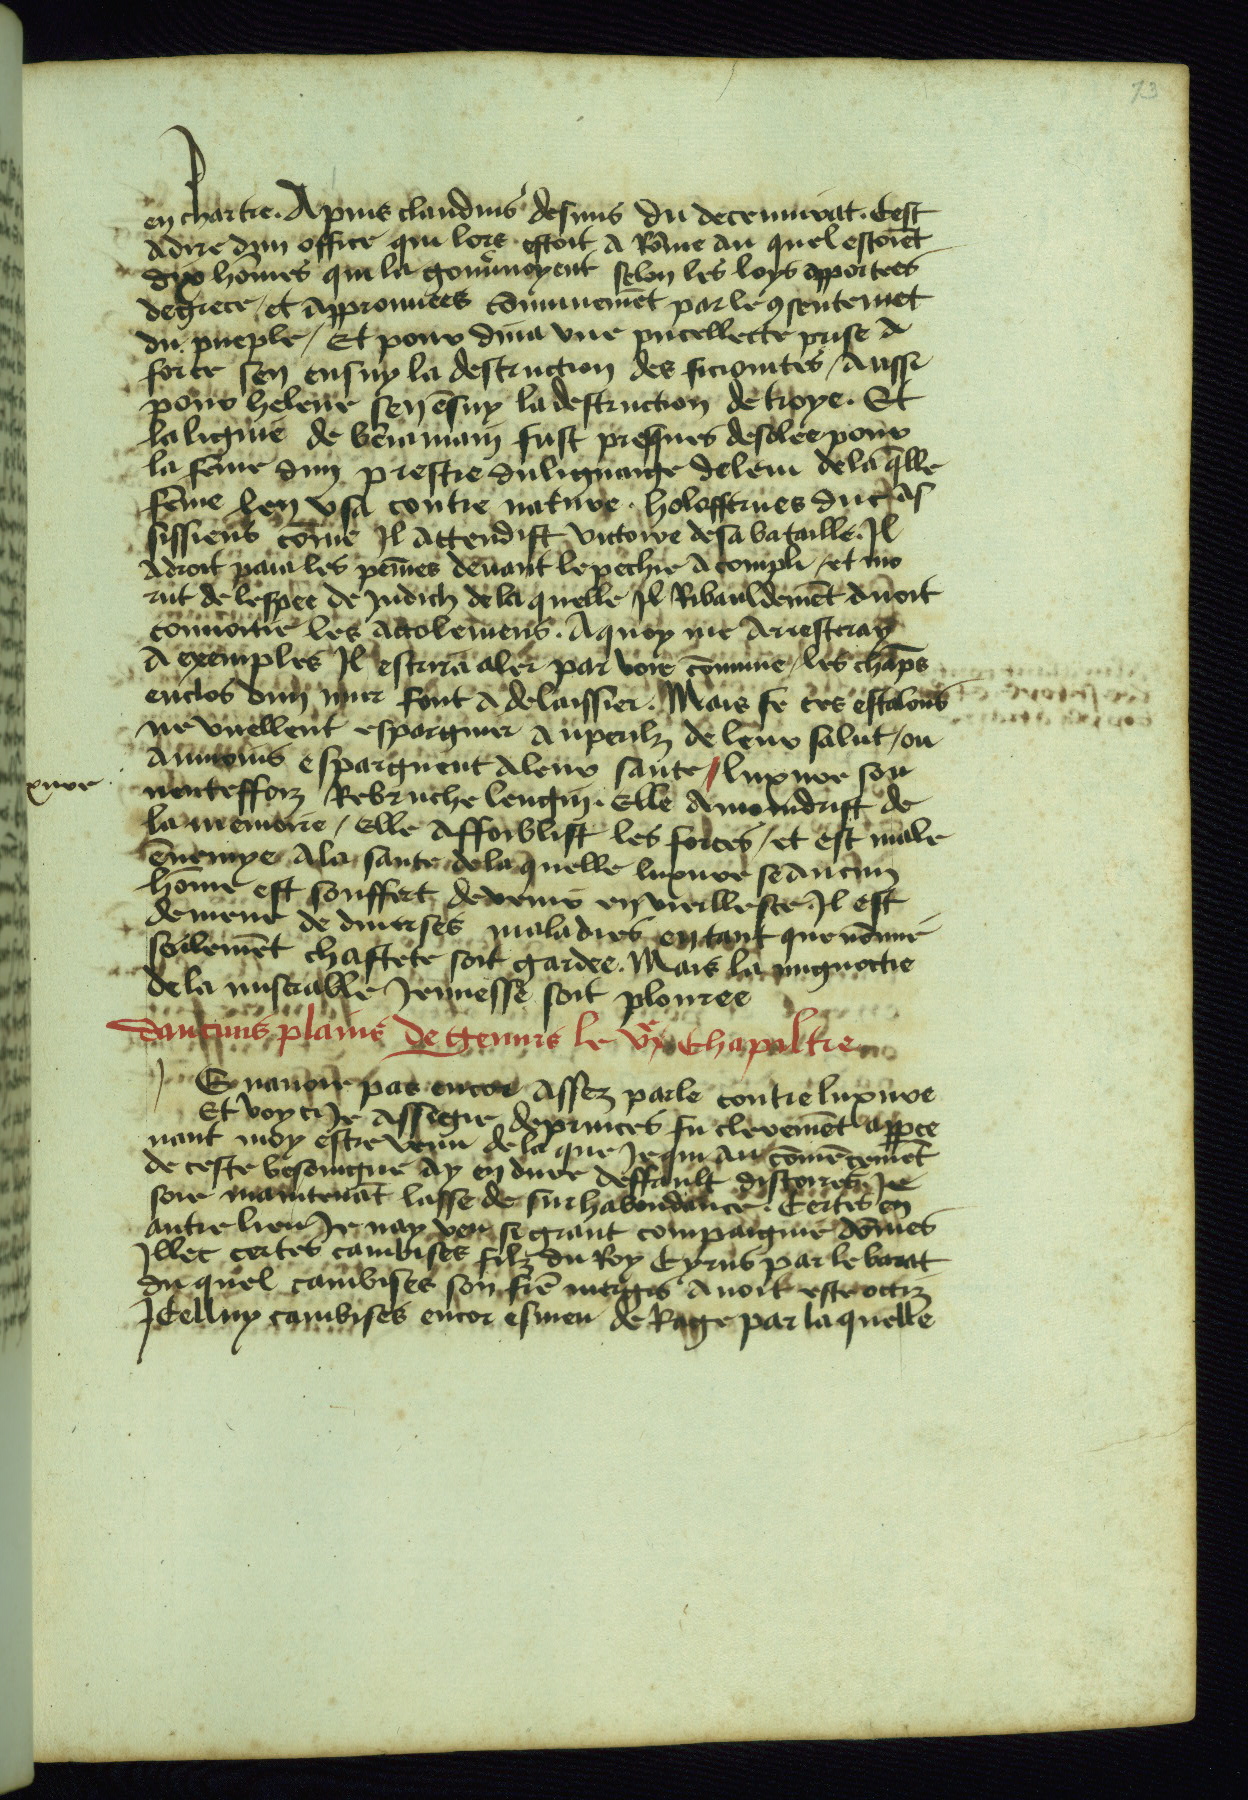 73
en chartre. Apius claudius desmis du decemvirat. Cest
adire dun office qui lors estoit a Rõme au quel estoiẽt
dix hõmes qui la gouũnoyent selon les loys apportees
de grece / et approuuees cõmunemẽt par le ꝯsentemẽt
du pueple / Et pour dina vne pucellecte prise a
force sen ensuy la destruction des sicionites / Aussi
pour helene sen ẽsuy la destruction de troye. Et
la lignie de beniamin fust presques desolee pour
la fẽme dun prestre du lignaige de leui de la q̃lle
fẽme len vsa contre nature. holofernes duc as
sissiens cõme Il attendist victoire de sa bataille. Il
adroit paia les peines deuant le pechie acompli / et mo
rut de lespee de Judich de la quelle Il Ribauldemẽt auoit
conuoitie les accolemens. A quoy me arresteray
a exemples Il estura aler par voie cõmune / les chãps
enclos dun mur sont a delaissier. Mais se ces estalons
ne vuellent espargnier au perilz de leur salut / ou
aumoins espargnent a leur sante // luxure sou
xure
uenteffoiz Rebruche lengin. Elle amoindrist de
la memoire / Elle affoiblist les forces / et est male
ẽnemye a la sante de la quelle luxure se aucun
hõme est souffert deuenir en vieillesce. Il est
demene de diuerses maladies en tant que nõme
seulemẽt chastete soit gardee. Mais la mignotie
de la miserable Jeunesse soit plouree
Daucuns plains de gemirs le vj᷒ chapiltre
E nauoie pas encor assez parle contre luxure
Et voy ci Je assiegie de princes fu clerement apperce
uant moy estre venu de la que Je qui au cõmẽcemẽt
de ceste besoingne ay endure deffault distoires. Je
soie maintenãt lasse de surhabondance. Certes en
autre lieu Je nay veu si grant compaignie dõmes
Illec certes cambises filz du Roy Cyrus par le barat
du quel cambises son fre mergis auoit este occiz
Icelluy cambises encor esmeu de Rage par la quelle